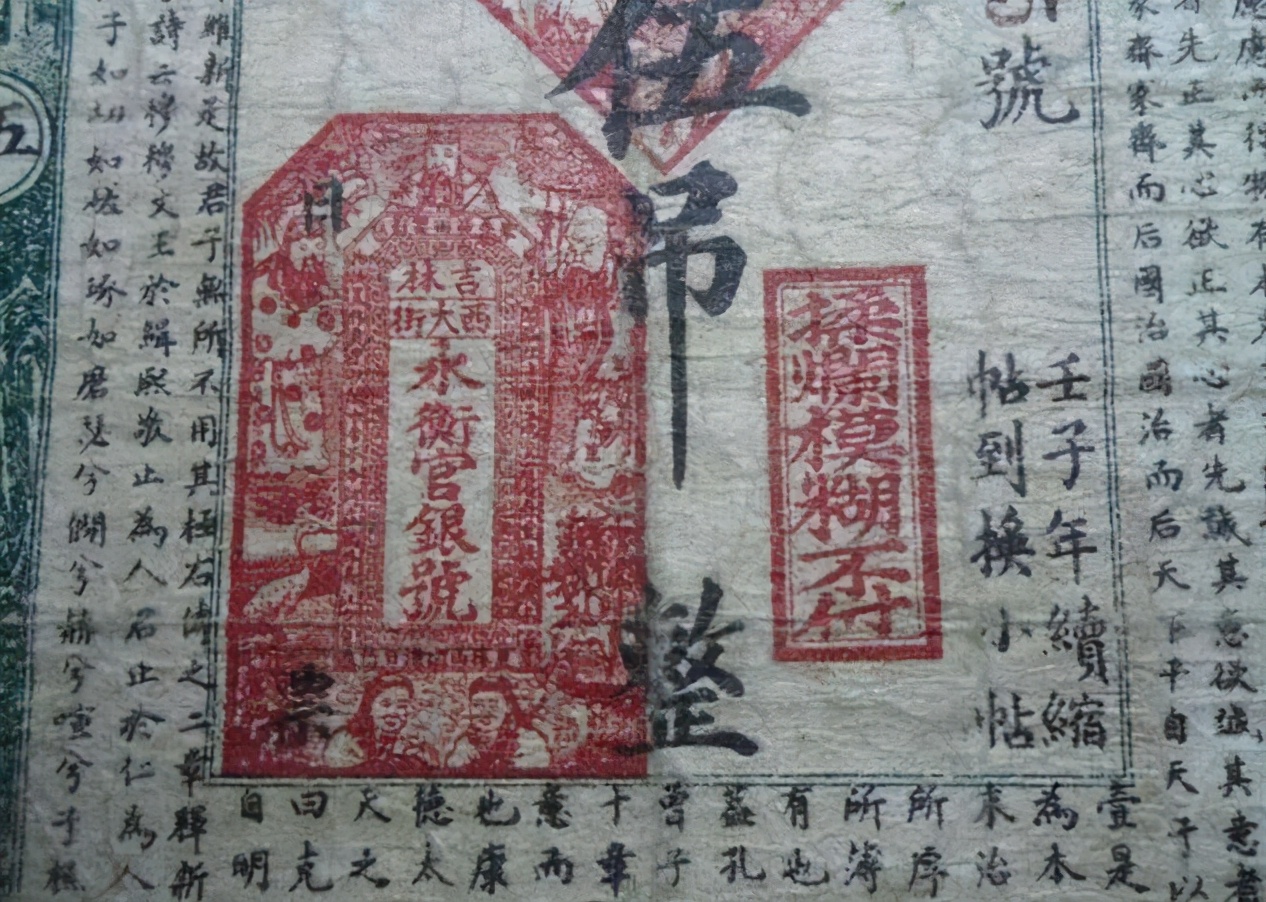 者先正其心欲正其心者先誠其意欲誠其意者
家齊家齊而后國治國治而后天下平自天子以
號
壬子年續縮
帖到換小帖
揉爛模糊不付
伍吊整
月
票
吉林
西大街
永衡官銀號
壹是
為本
末治
所厚
所薄
有也
蓋孔
曾子
十章
意而
也康
德太
天之
曰克
自明
維新是故君子無所不用其極右傳之二章釋新
詩云穆穆文王於緝熙敬止為人君止於仁為人
子如切如磋如琢如磨瑟兮僩兮赫兮喧兮子
五